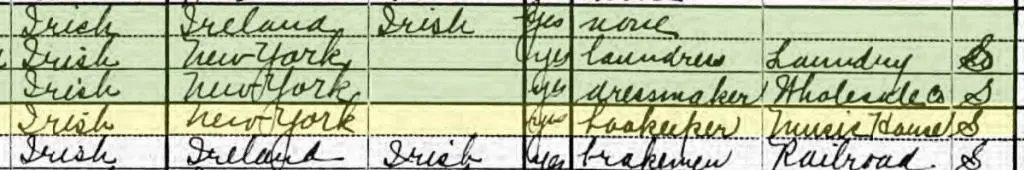 Irish Ireland Irish yes none
Irish New York yes laundress Laundry S
Irish New York yes dressmaker Wholesale Co S
Irish New York yes bookeeper Music House S
Irish Ireland Irish yes brakemen Railroad S